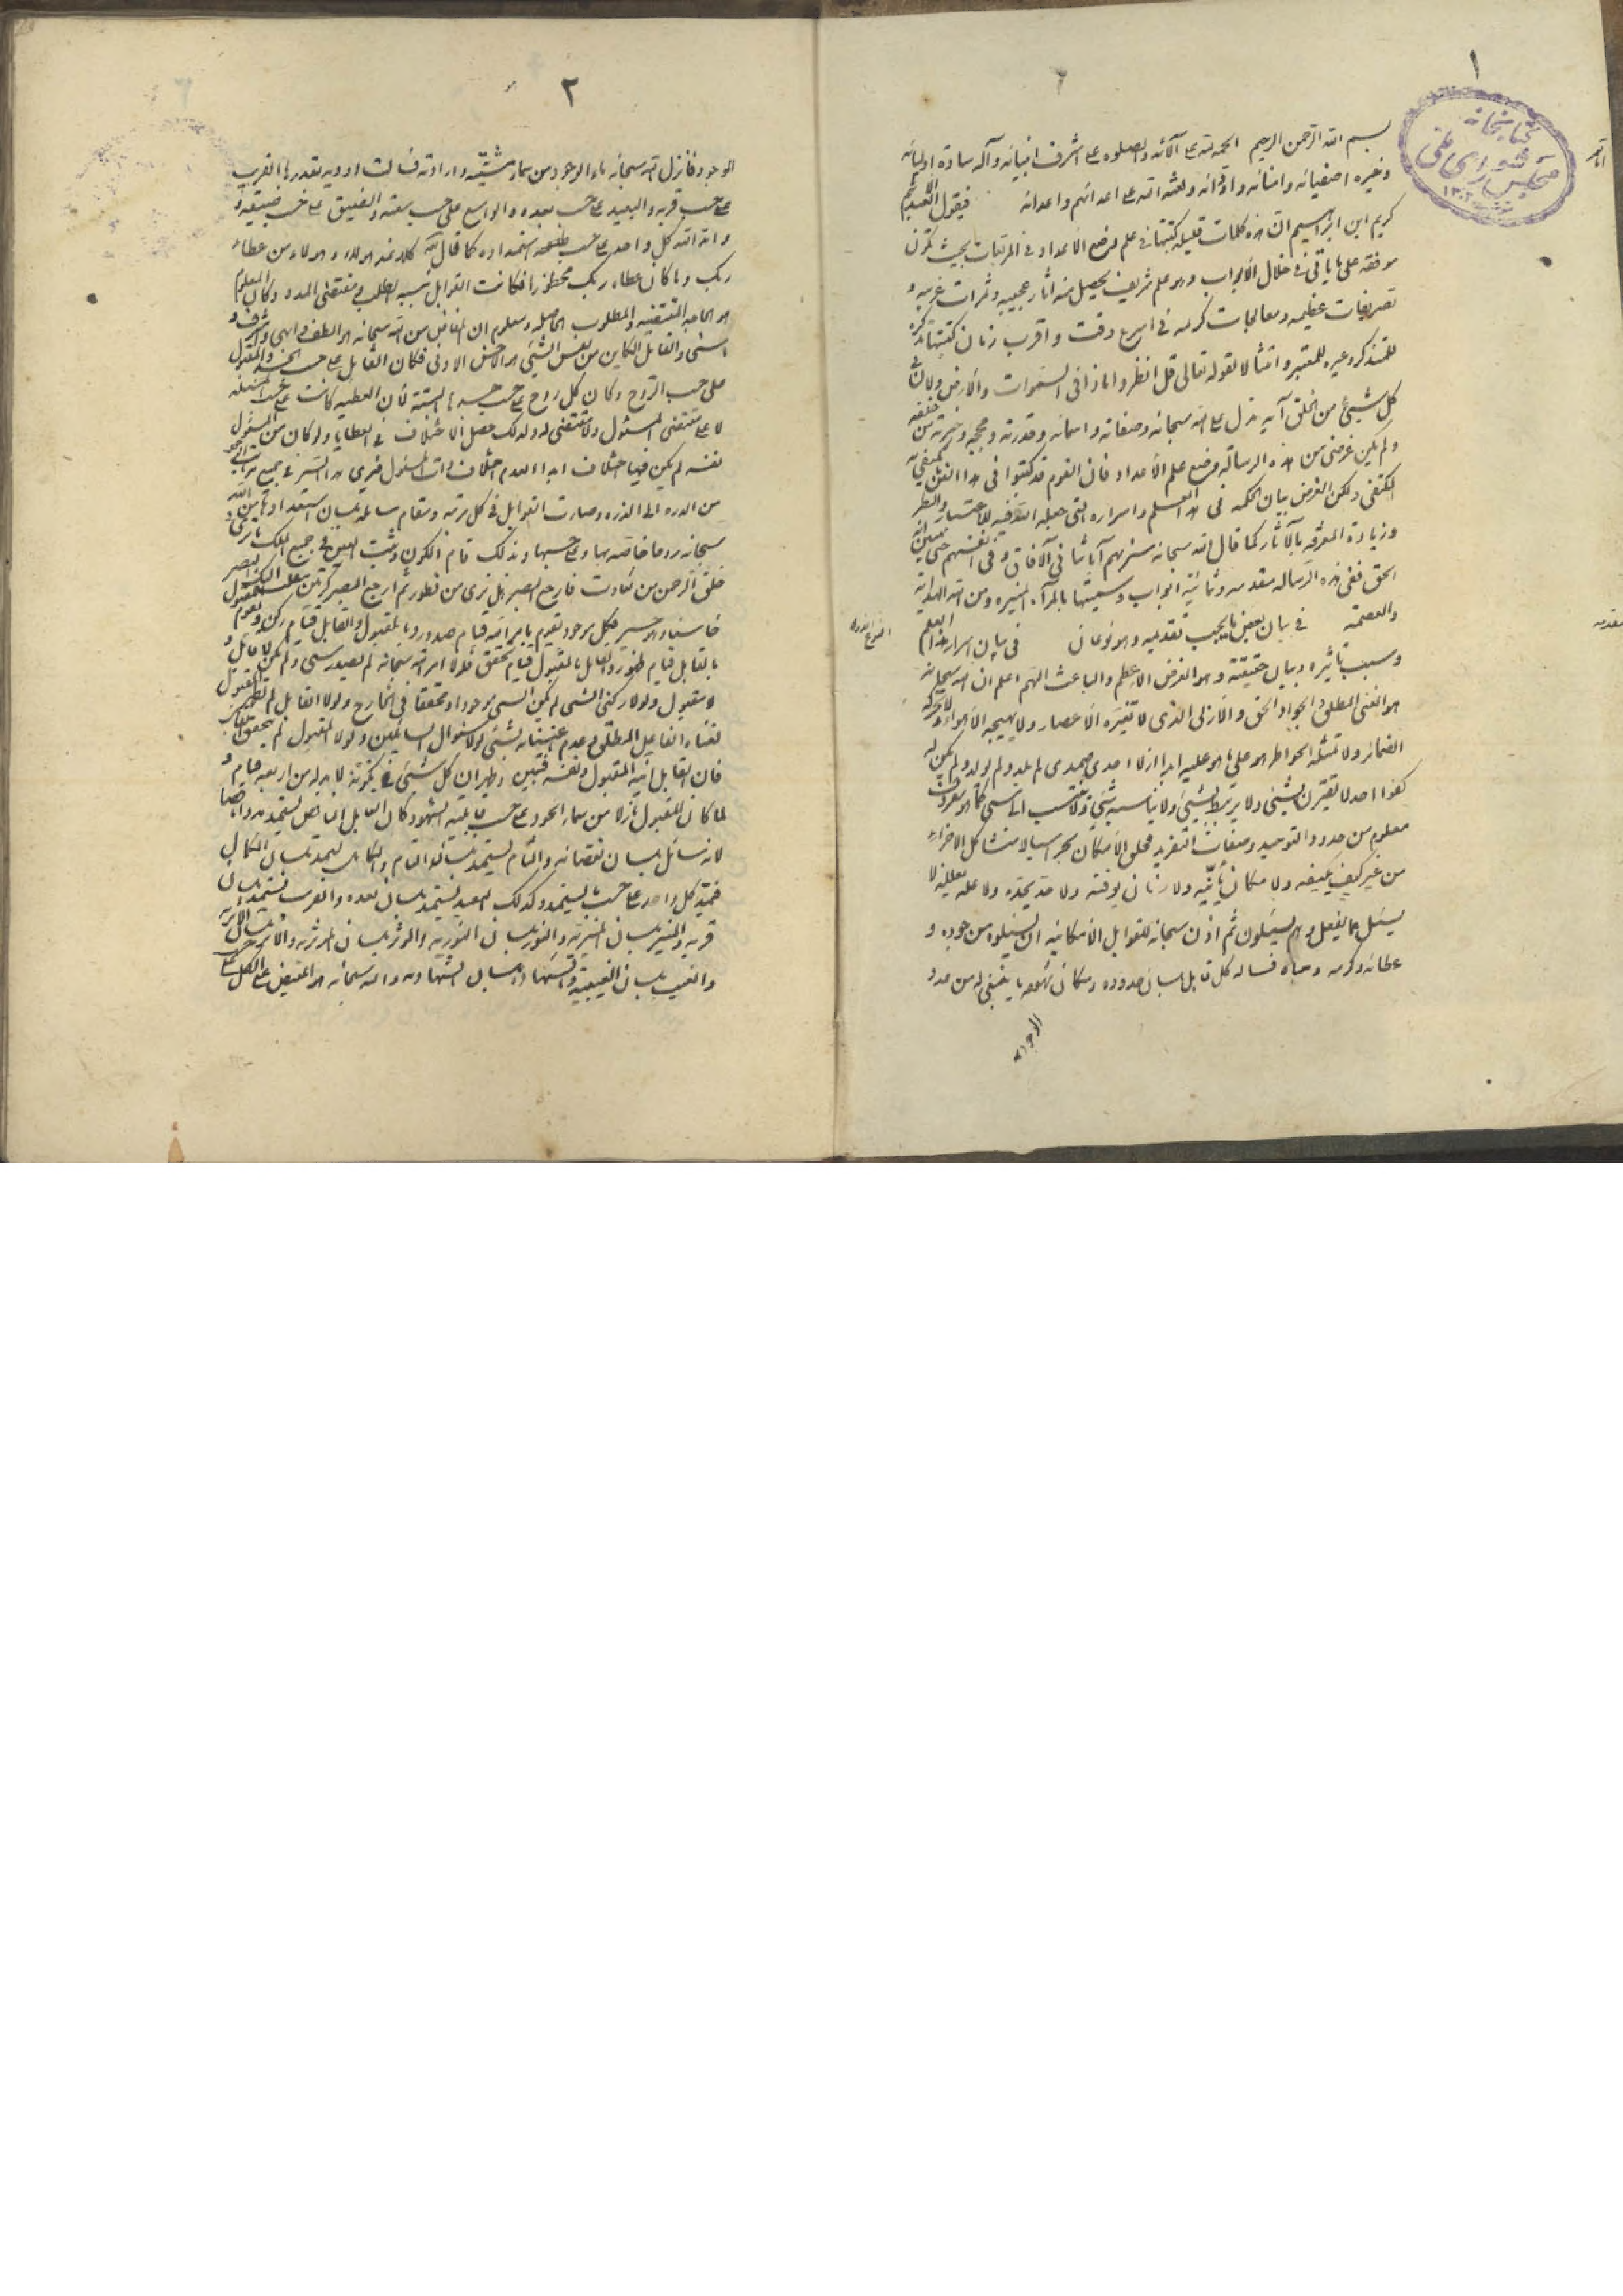 ١
كتابخانه
مجلس شورای ملی
بسم الله الرحمن الرحيم الحمد لله على آلائه والصلوه على اشرف انبيائه وآله سادة اوليائه
وخيره اصفيائه وامنائه واودائه ولعنه الله على اعدائهم واعدائه فيقول العبد الاثيم
كريم ابن ابراهيم ان هذه كلمات قليله كتبتها فى علم وضع الاعداد فى المربعات بحيث تكون
موفقه على ما ياتى فى خلال الابواب وهو علم شريف يحصل منه آثار عجيبه وثمرات غريبه و
تصريفات عظيمه ومعالجات كريمه فى اسرع وقت واقرب زمان كتبتها تذكره
للتذكر وعبره للمعتبر وامتثالا لقوله تعالى قل انظروا ماذا فى السموات والارض ولان فى
كل شيئ من الخلق آيه تدل على الله سبحانه وصفاته واسمائه وقدرته وحججه وخيرته من خلقه
ولم يكن غرضى من هذه الرساله وضع علم الاعداد فان القوم قد كتبوا فى هذا الفن ما يكتفى به
المكتفى ولكن الغرض بيان الحكمه فى هذا العلم واسراره التى جعلها الله فيه للاعتبار والنظر
وزيادة المعرفه بالآثار كما قال الله سبحانه سنريهم آياتنا فى الآفاق وفى انفسهم حتى يتبين لهم انه
الحق ففى هذه الرساله مقدمه وثمانية ابواب وسميتها بالمرآه المنيره ومن الله الهداية
والعصمة فى بيان بعض ما يجب تقديمه وهو نوعان فى بيان اسرار هذا العلم
وسبب تاثيره وبيان حقيقته وهو الغرض الاعظم والباعث الاهم اعلم ان الله سبحانه
هو الغنى المطلق والجواد الحق والازلى الذى لا تغيره الاعصار ولا يهيجه الاهواء ولا تدركه
الضمائر ولا تمثله الخواطر هو على ما هو عليه ابدا ازلا احدى صمدى لم يلد ولم يولد ولم يكن له
كفوا احد لا يقترن بشيئ ولا يرتبط بشيئ ولا يناسبه شيئ ولا ينتسب الى شيئ كما هو معروف
معلوم من حدود التوحيد وصفات التفريد فخلق الامكان بحرا سيالا متشاكل الاجزاء
من غير كيف يكيفه ولا مكان يأينه ولا زمان يوقته ولا حد يحدده ولا علة يعلله لا
يسئل عما يفعل وهم يسئلون ثم اذن سبحانه للقوابل الامكانيه ان يسئلوه من جوده و
عطائه وكرمه وحباه فسأله كل قابل بلسان حدوده ومكان ما ينبغى له من مدد
الوجود
مقدمه
النوع الاول
٢
الوجود فانزل الله سبحانه ماء الوجود من سماء مشيته وارادته فسالت اوديه بقدرها القريب
على حسب قربه والبعيد على حسب بعده والواسع على حسب سعته والضيق على حسب ضيقه و
امد الله كل واحد على حسب استمداده كما قال الله كلا نمد هؤلاء وهؤلاء من عطاء
ربك وما كان عطاء ربك محظورا فكانت القوابل نسبه الطلب ومقتضى المدد وكان المعلوم
ومعلوم ان الفائض من الله سبحانه هو الطف وابهى واشرف و
اسنى والقابل الكاين من نفس الشيئ هو الاخس الادنى فكان القابل على حسب الجسد والمقبول
على حسب الروح وكان كل روح على حسب جسدها البتة لان العطيه كانت على حسب المسئله
لا على مقتضى المسئول ولذلك حصل الاختلاف فى العطايا ولو كان من المسئول
نفسه لم يكن فيها اختلاف ابدا لعدم اختلاف ذات المسئول فيرى هذا السر فى جميع مراتب الوجود
من الدره الى الذره وصارت القوابل فى كل رتبه ومقام سائله بلسان استعدادها من الله
سبحانه روحا خاصه بها وعلى حسبها وبذلك قام الكون وثبت العين فى جميع الملك ما ترى فى
خلق الرحمن من تفاوت فارجع البصر هل ترى من فطور ثم ارجع البصر كرتين ينقلب اليك البصر
خاسئا وهو حسير فكل موجود يقوم بامر الله قيام صدور وبالمقبول والقابل قيام ركن ويقوم المقبول
بالقابل قيام ظهور والقابل بالمقبول قيام تحقق فلولا امر الله سبحانه لم يصدر شيئ ولم يكن لا قابل و
لا مقبول ولولا ركنى الشيئ لم يكن الشيئ موجودا ومحققا فى الخارج ولولا القابل لم يظهر المقبول
لغناء الفاعل المطلق وعدم عنايته بشيئ لولا سؤال السائلين ولولا المقبول لم يتحقق القابل
فان القابل انيه المقبول ونفسه فتبين وظهر ان كل شيئ فى تكونه لا بد له من اربعه قيام و
لما كان المقبول نازلا من سماء الجود على حسب قابليه الشهود كان القابل الناقص يستمد مددا ناقصا
لانه سائل بلسان نقصانه والتام يستمد بلسانه التام والكامل يستمد بلسان الكمال
فيمد كل واحد على حسب ما يستمد وكذلك البعيد يستمد بلسان بعده والقريب يستمد بلسان
قربه والمنير بلسان المنيريه والنور بلسان النوريه والمؤثر بلسان المؤثريه والاثر بلسان الاثريه
والغيب بلسان الغيبيه والشهاده بلسان الشهاده والله سبحانه هو المفيض على الكل على حسب